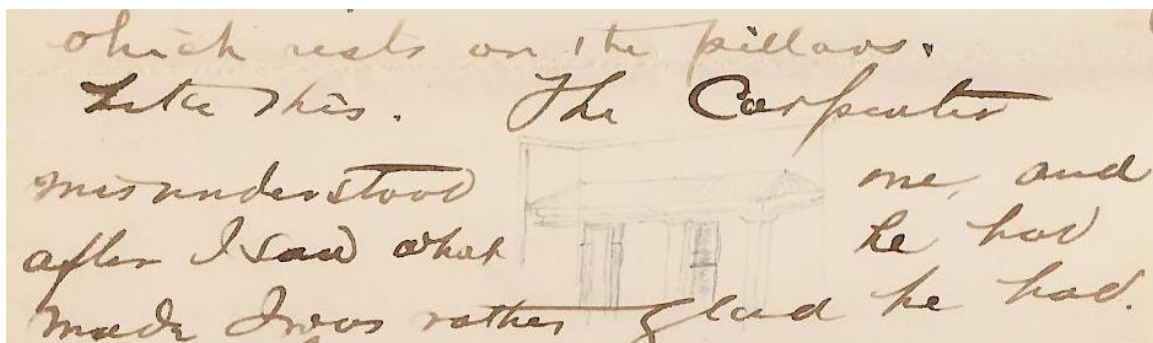 which rests on the pillars.
Like this. The Carpenter
misunderstood me, and
after I saw what he had
made I was rather glad he had.